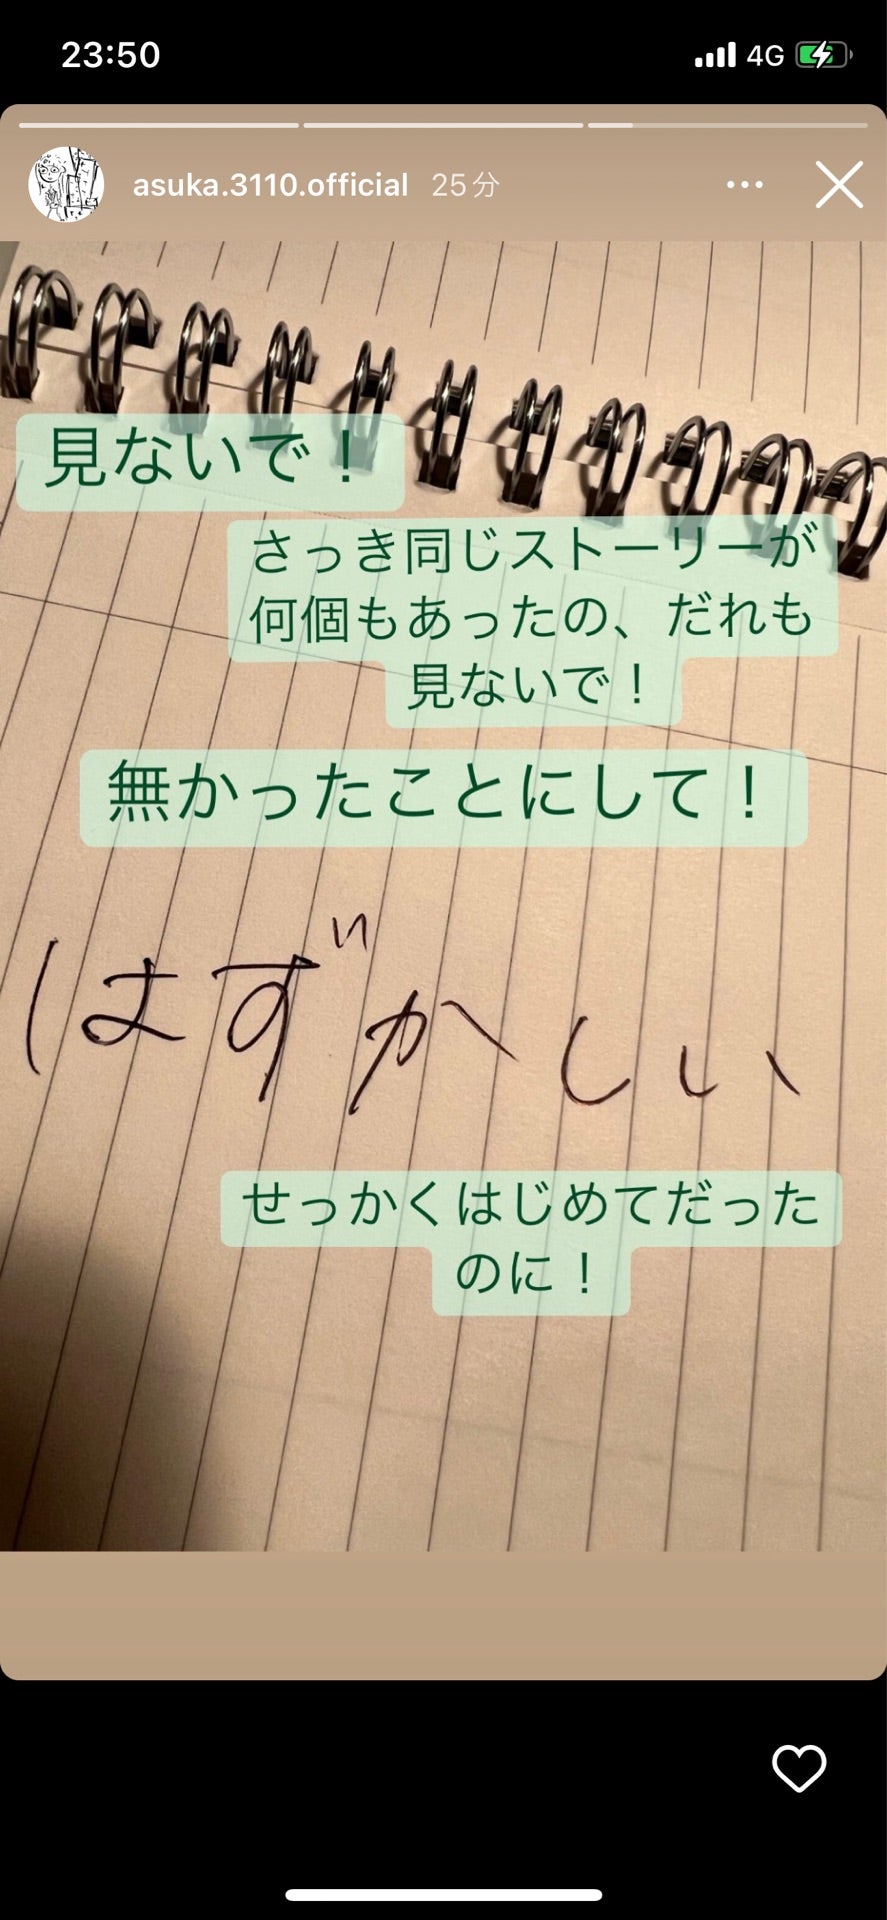 23:50
4G
asuka.3110.official 25分
見ないで！
さっき同じストーリーが
何個もあったの、だれも
見ないで！
無かったことにして！
はずかしい
せっかくはじめてだった
のに！